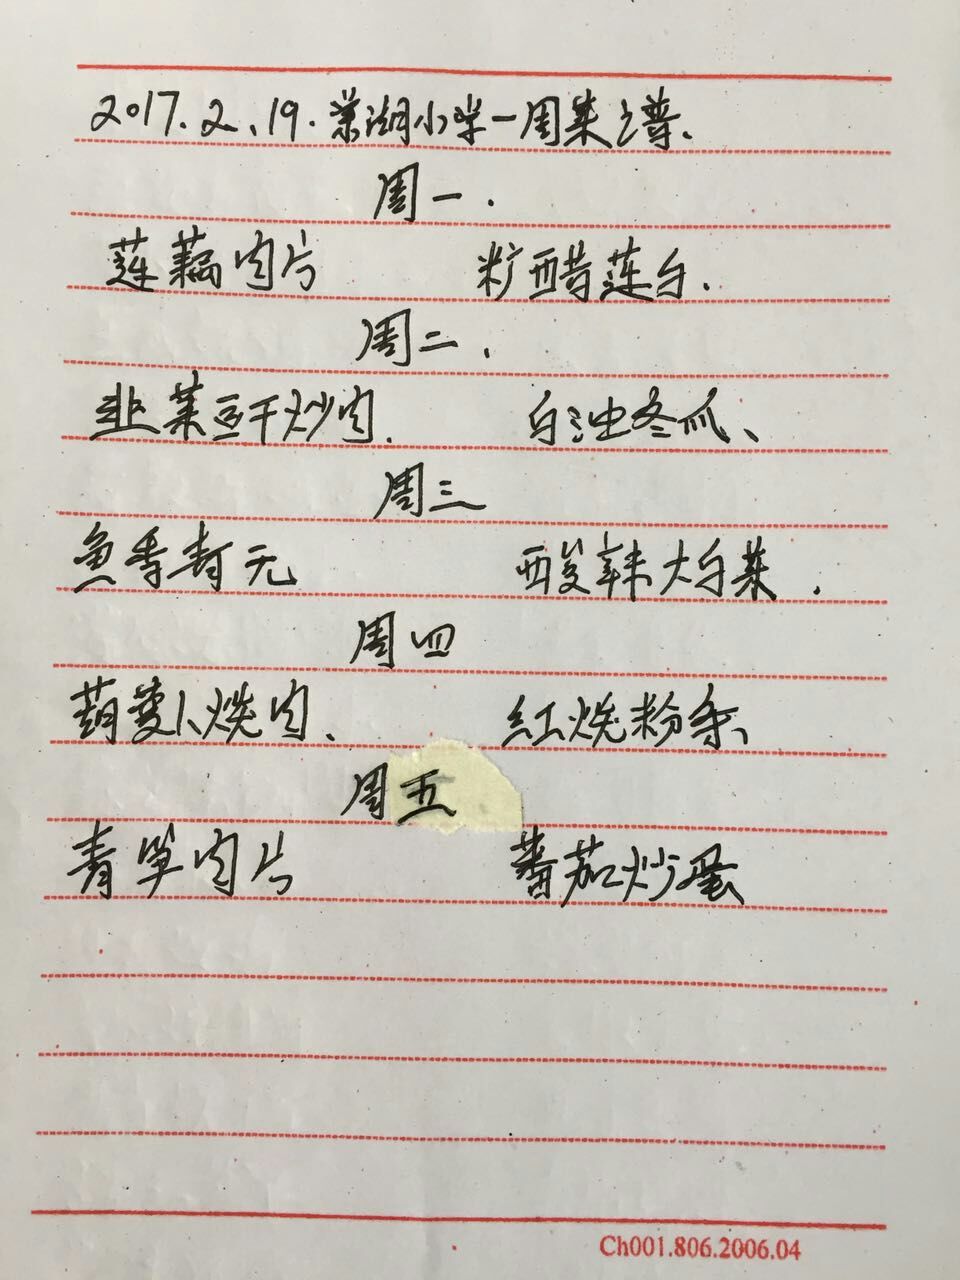 2017.2.19.棠湖小学一周菜谱.
周一.
莲藕肉片 糖醋莲白.
周二.
韭菜豆干炒肉. 白油冬瓜、
周三
鱼香青元 酸辣大白菜.
周四
葫萝卜烧肉、 红烧粉条、
周五
青笋肉片 蕃茄炒蛋
Ch001.806.2006.04